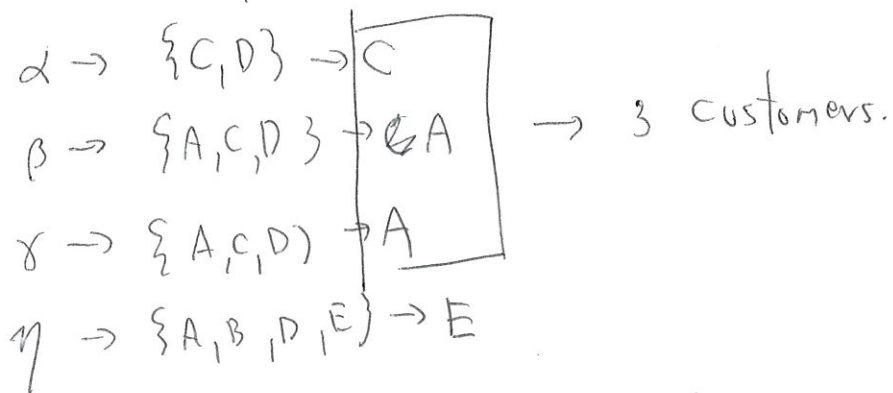 α → {C,D} → C
β → {A,C,D} → A → 3 customers.
γ → {A,C,D) → A
η → {A,B,D,E} → E